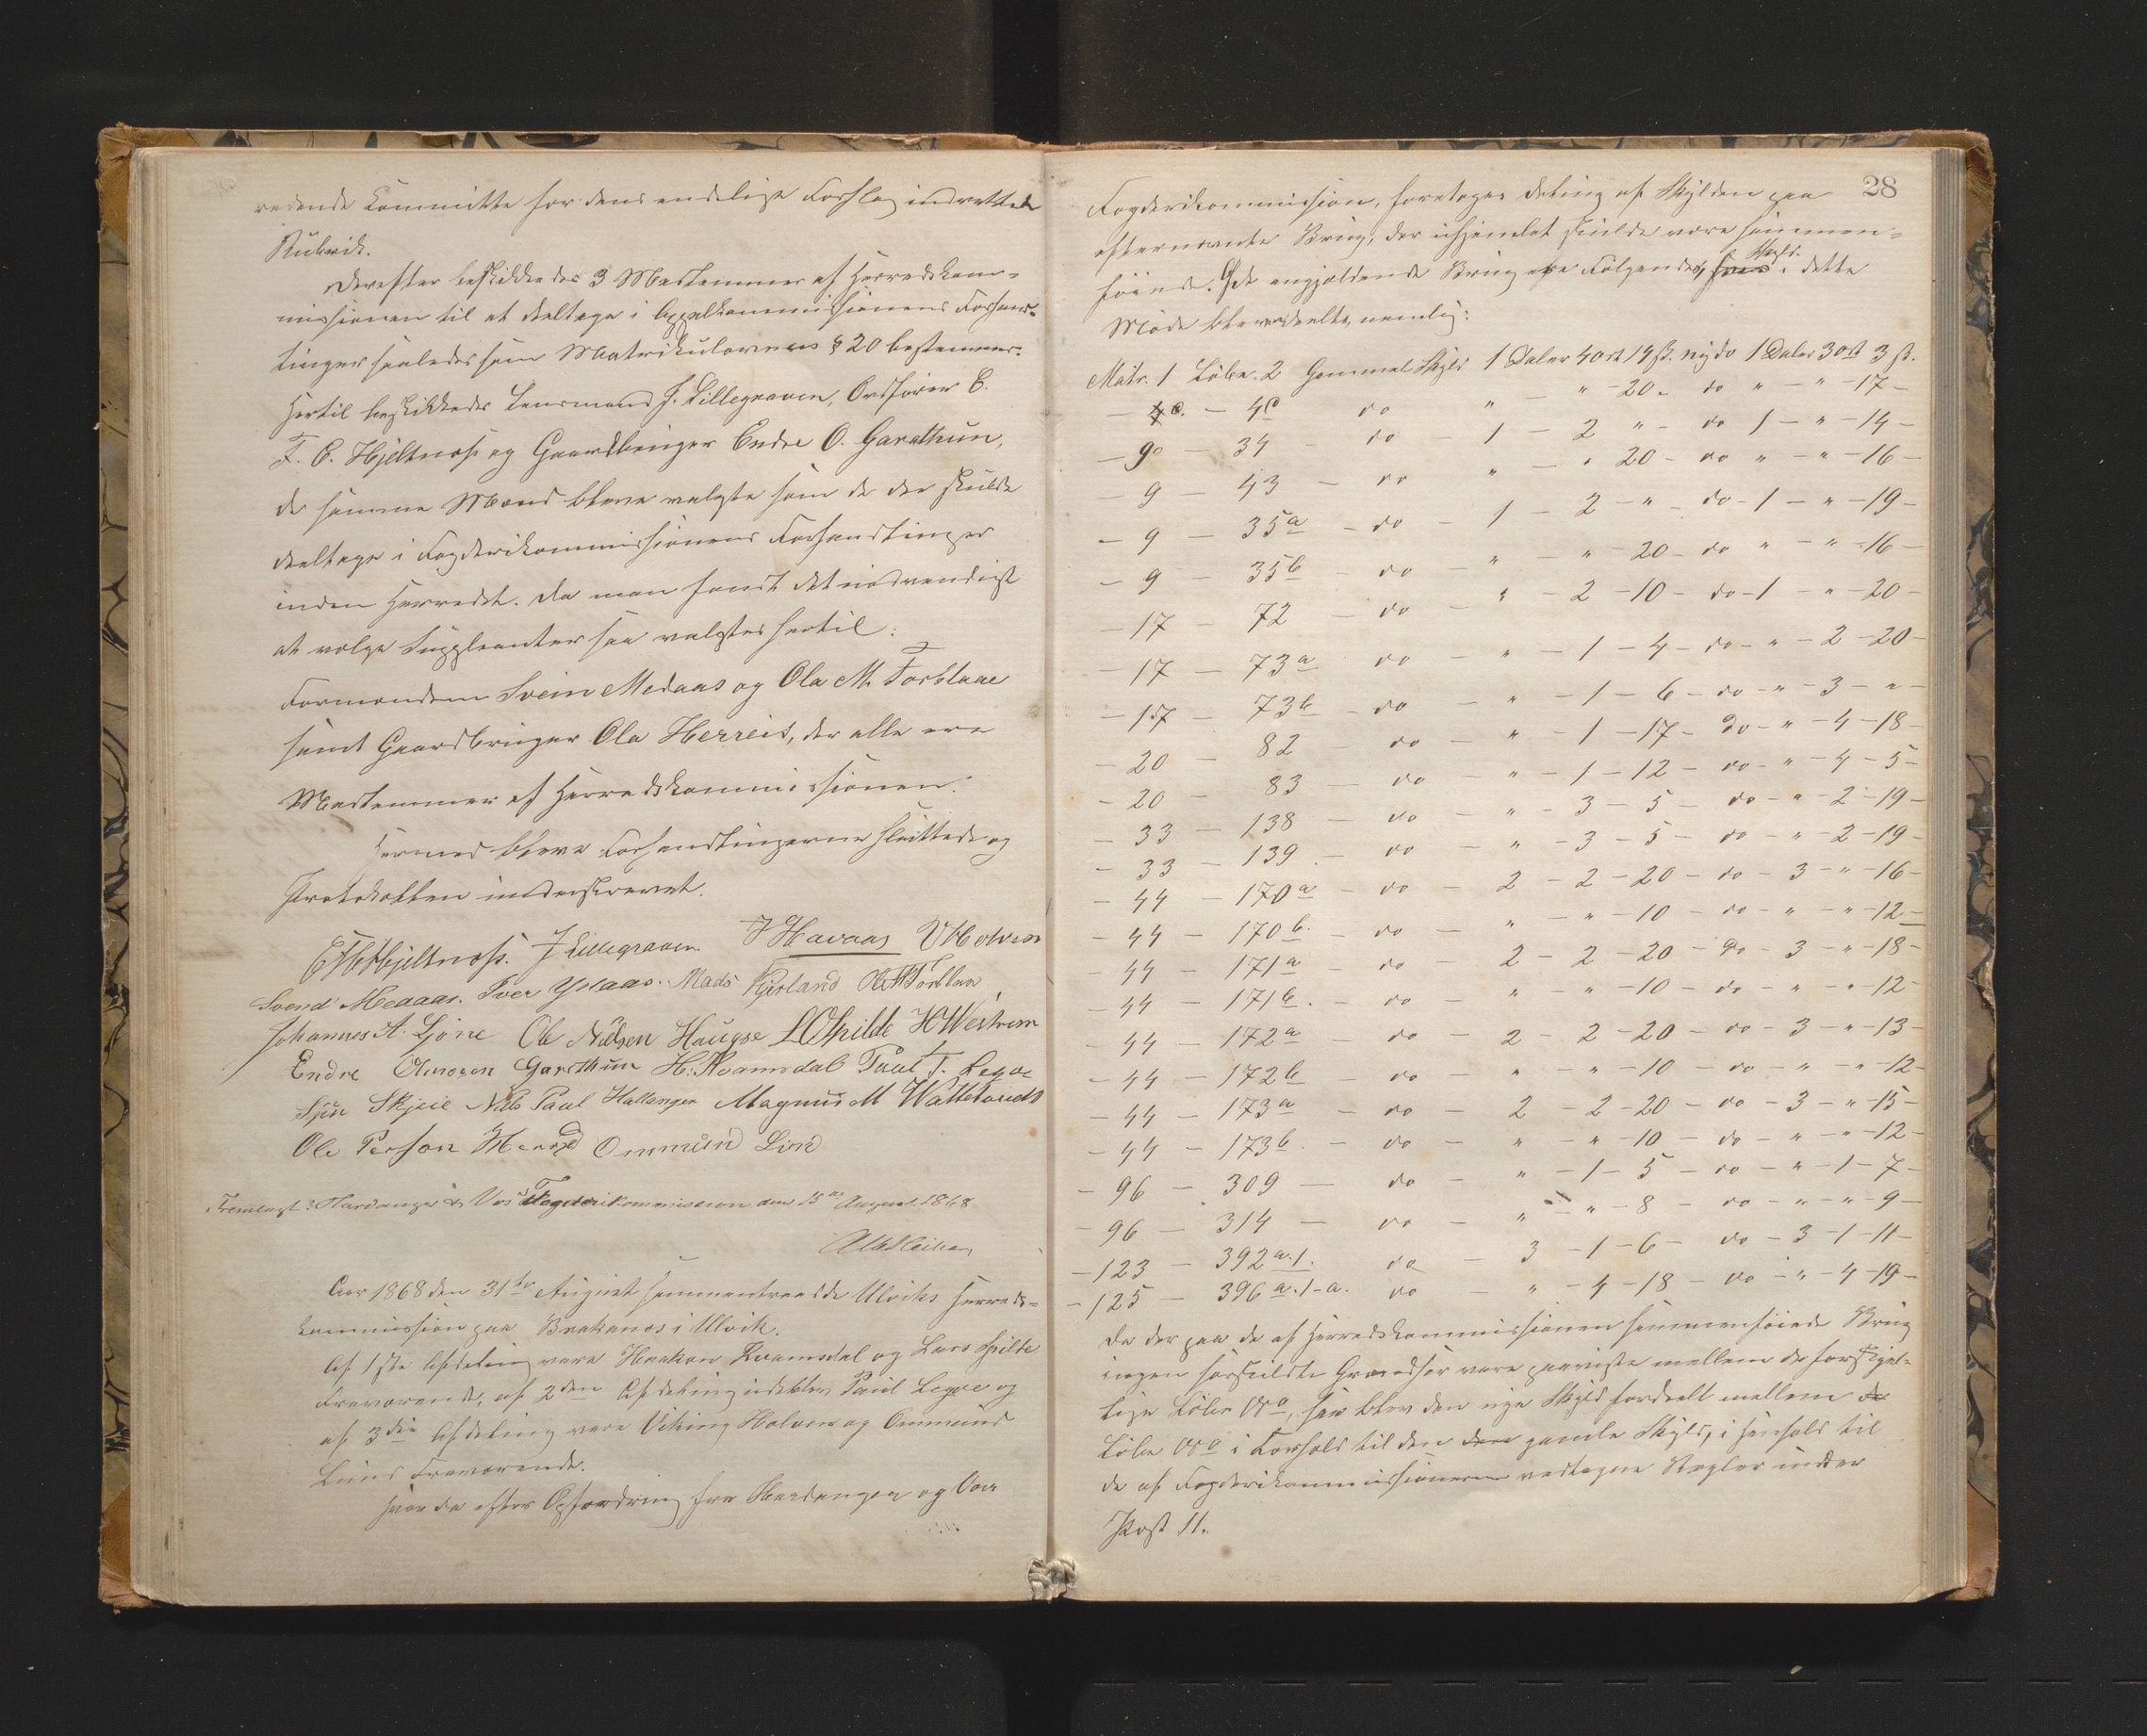 redende Committe for dens endelige Forslag indrettede
Rubrik.
Derefter beskikkedes 3 Medlemmer af Herredskom-
missionen til at deeltage i Appelkommissionens Forhand-
linger saaledes som Matrikulovens § 20 bestemmer.
Hertil beskikkedes Lensmand J. Lillegraven, Ordfører E.
T. E. Hjeltnæs og Gaardbruger Endre O. Garathun,
de samme Mænd bleve valgte som de der skulde
deeltage i Fogderikommissionens Forhandlinger
inden Herredet. Da man fandt det nødvendigt
at vælge Suppleanter saa valgtes hertil:
Formanden Svein Medaas og Ola M. Torblaae
samt Gaardbruger Ola Herreid, der alle ere
Medlemmer af Herredskommissionen.
Hermed bleve Forhandlingerne sluttede og
Protokollen underskrevet.
ETEHjeltnæs. J Lillegraven J Havaas V Holven
Svend Medaas. Iver Ydaas. Mads Kjerland OM Torblaa
Johannes A. Ljøne Ole Nilsen Haugse L O Spilde H Westrem
Endre Amosen Garathun H. Kvamsdal Paul T. Legve
Sjur Skjeie Nils Paul Hallanger Magnus M Wattetveds
Ole Person Herreid Ommund Lind
Fremlagt i Hardanger & Vos's Fogderikommission den 15de August 1868
Aar 1868 den 31te August sammentraadte Ulviks Herreds-
kommission paa Brakanæs i Ulvik.
Af 1ste Afdeling vare Haakon Kvamsdal og Lars Spilde
Fraværende, af 2den Afdeling udeblev Paul Legve og
af 3die Afdeling vare Viking Holven og Ommund
Lind Fraværende.
Hvor da efter Opfordring fra Hardanger og Vos
28
Fogderikommission, foretoges Deling af Skylden paa
efternævnte Brug, der uhjemlet skulde være sammen-
føiede. De angjældende Brug ere Følgende, hvis Skyld i dette
Møde blev deelte, nemlig:
Matr. 1 Løbe. 2 Gammel Skyld 1 Daler 4 ort 14 ß. ny do 1 Daler 3 ort 3 ß.
— 4c do " — " 20 – do " — " — 17 —
— 9 — 34 — do — 1 — 2 " – do 1 — " — 14 —
— 9 43 — do " — " 20 – do " — " — 16 —
— 9 — 35a — do — 1 — 2 — " – do — 1 — " — 19 —
— 9 — 35b — do — " — " 20 – do " — " — 16 —
— 17 — 72 — do — " — 2 — 10 — do — 1 — " — 20 —
— 17 — 73a do — " — 1 — 4 — do — " — 2 — 20 —
— 17 — 73b — do — " — 1 — 6 — do — " — 3 — " —
— 20 — 82 — do — " — 1 — 17 — do — " — 4 — 18 —
— 20 — 83 — do — " — 1 — 12 — do — " — 4 — 5 —
— 33 — 138 — do — " — 3 — 5 — do — " — 2 — 19 —
— 33 — 139 — do — " — 3 — 5 — do — " — 2 — 19 —
— 44 — 170a — do — 2 — 2 — 20 — do — 3 — " — 16 —
— 44 — 170b — do — " — " — 10 — do — " — " — 12 —
— 44 — 171a — do — 2 — 2 — 20 — do — 3 — " — 18 —
— 44 — 171b. — do — " — " — 10 — do — " — " — 12 —
— 44 — 172a — do — 2 — 2 — 20 — do — 3 — " — 13 —
— 44 — 172b — do — " — " — 10 — do — " — " — 12 —
— 44 — 173a — do — 2 — 2 — 20 — do — 3 — " — 15 —
— 44 — 173b — do — " — " — 10 — do — " — " — 12 —
— 96 — 309 — do — " — 1 — 5 — do — " — 1 — 7 —
— 96 — 314 — do — " — " — 8 — do — " — " — 9 —
— 123 — 392a.1. do — 3 — 1 — 6 — do — 3 — 1 — 11 —
— 125 — 396a.1-a. do — " — 4 — 18 — do — " — 4 — 19 —
Da der paa de af Herredskommissionen sammenføiede Brug
ingen særskildte Grændser vare paaviste mellem de forskjel-
lige Løbe No, saa blev den nye Skyld fordeelt mellem de
Løbe No i Forhold til den den gamle Skyld, i Henhold til
de af Fogderikommissionerne vedtagne Regler under
Post 11.